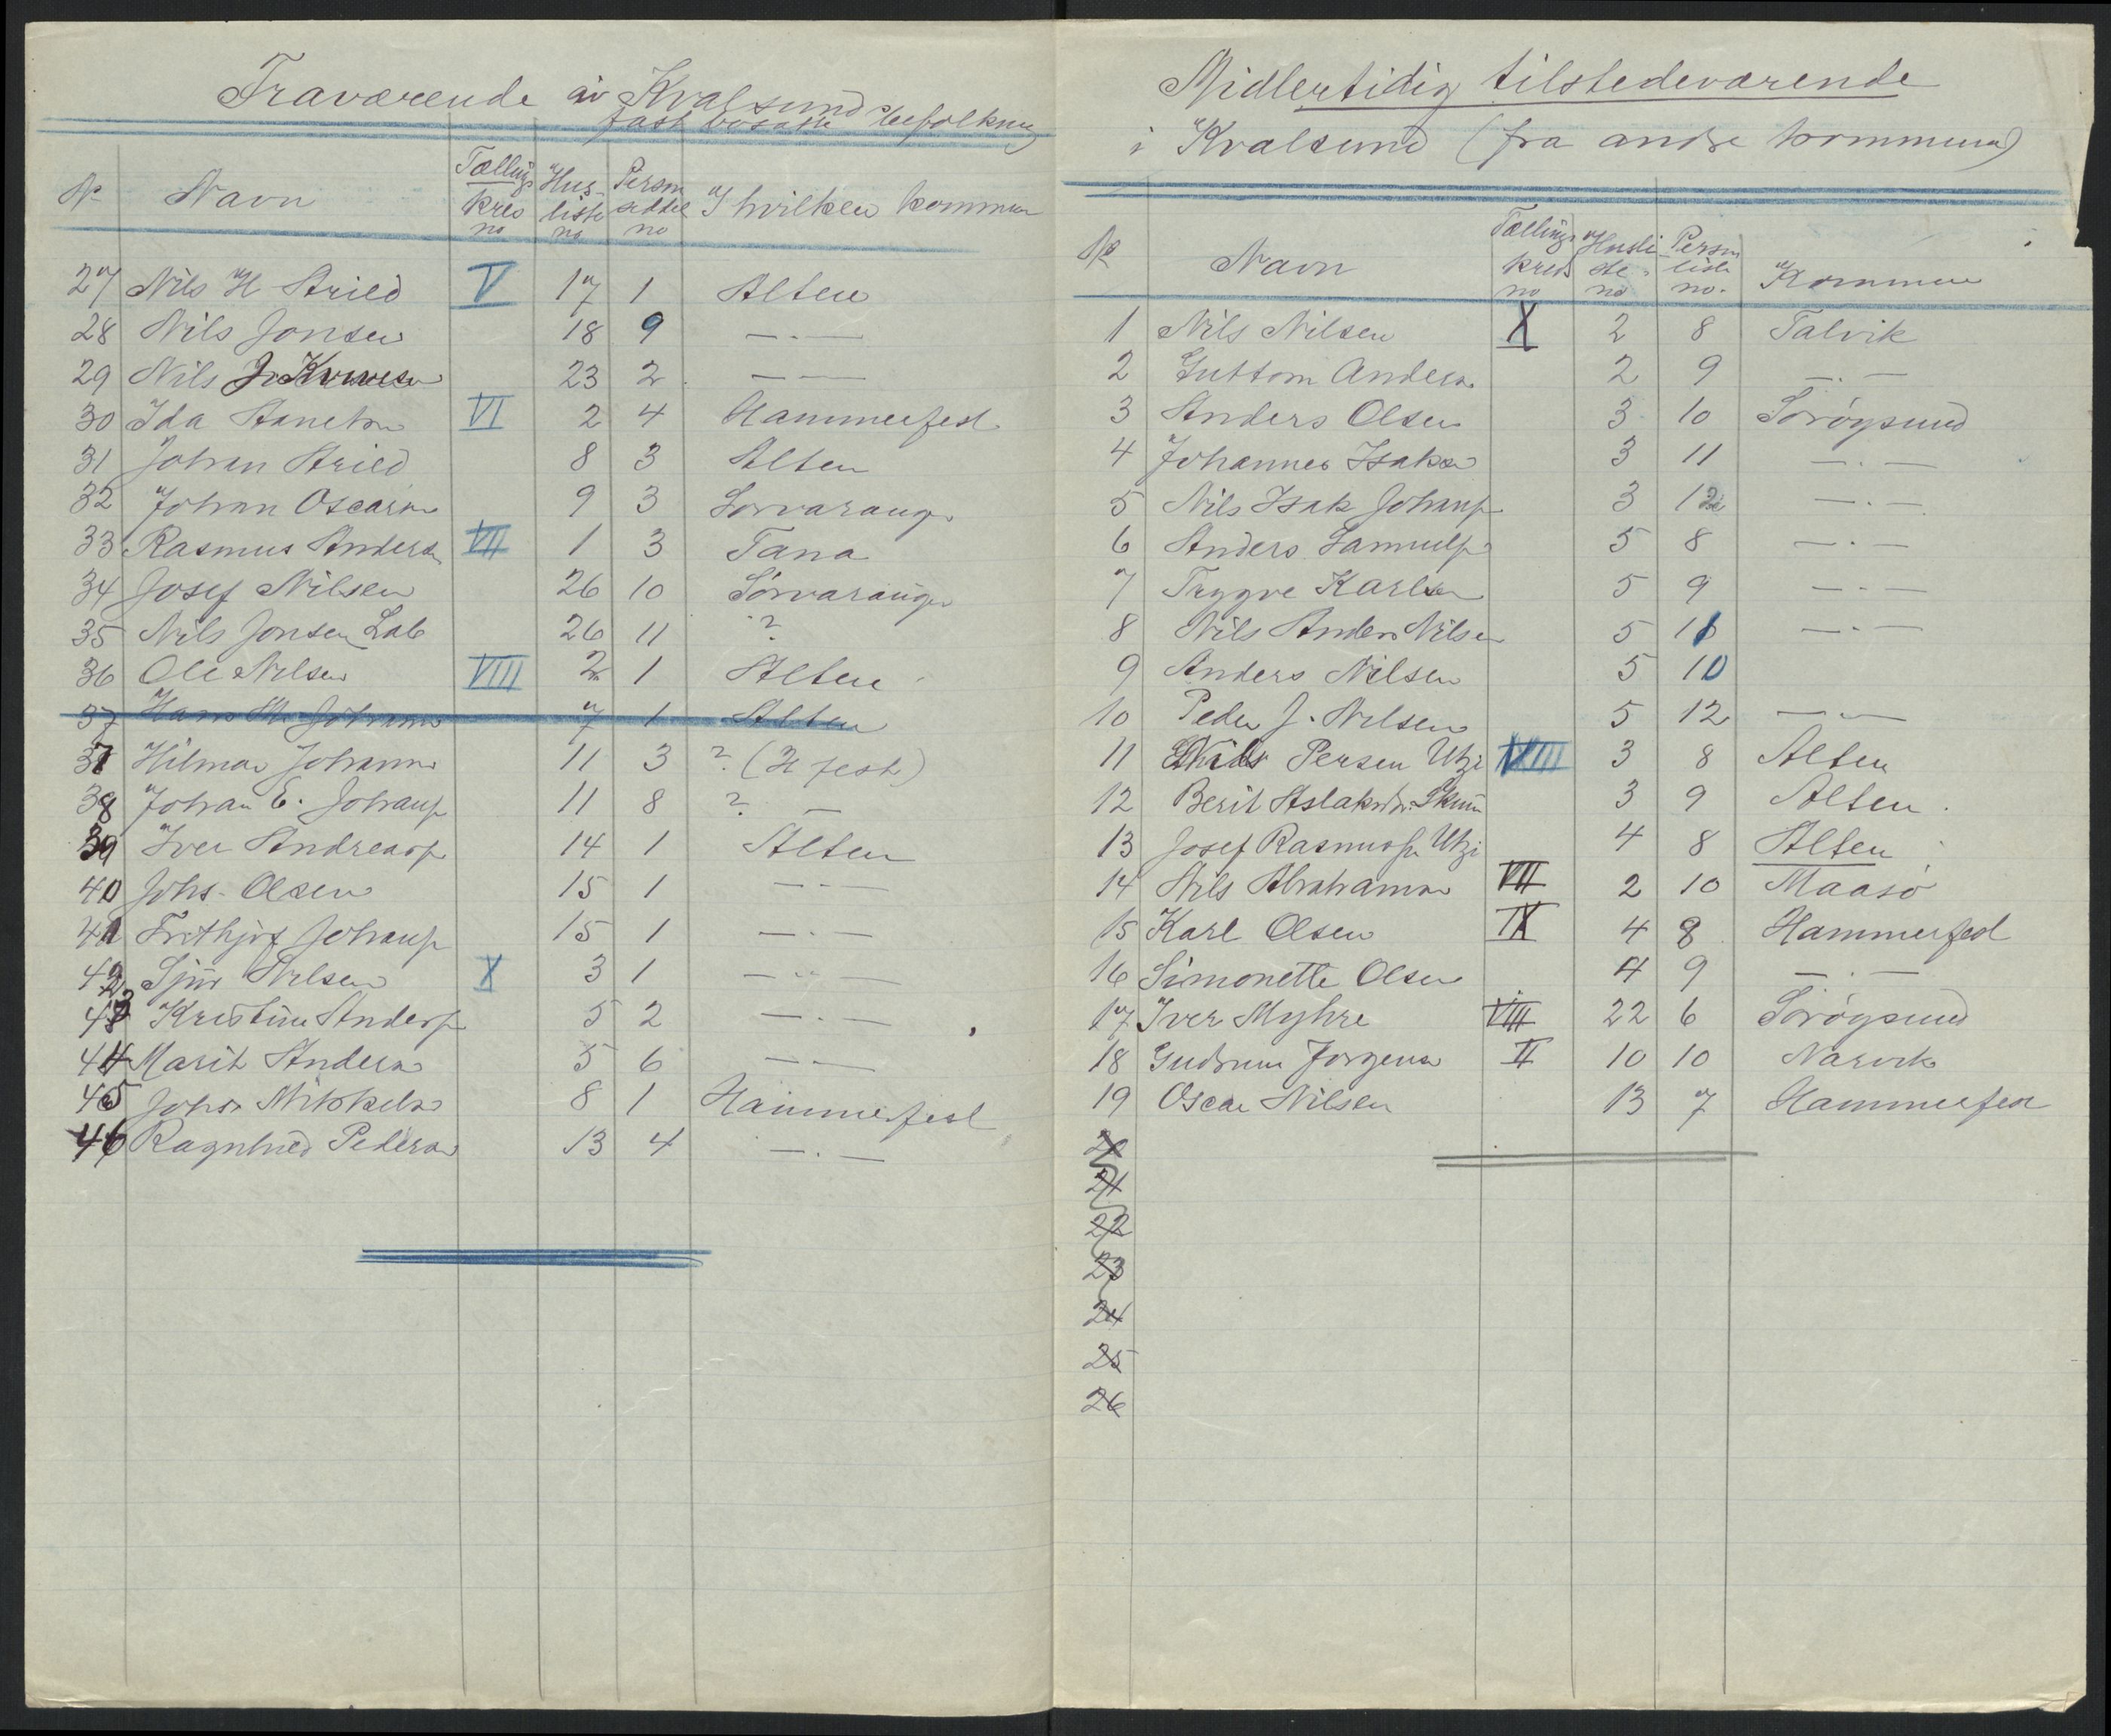 Fraværende av Kvalsund
fast bosatte befolkning
No Navn Tællings kres no Hus- liste no Person seddel no I hvilken kommune
27 Nils H Aried V 17 1 Alten
28 Nils Jonsen 18 9 —.—
29 Nils 23 2 — —
30 Ida VI 2 4 Hammerfest
31 Johan Aried 8 3 Alten
32 Johan Oscarsen 9 3 Sorvaranger
33 Rasmus Andersen VII 1 3 Tana
34 Josef Nilsen 26 10 Sörvaranger
35 Nils Jonsen Lab 26 11 ?
36 Ole Nilsen VIII 2 1 Alten
37 Hans Johansen 7 1 Alten
37 Hilmar Johannes 11 3 ? (H fest)
38 Johan E. Johansen 11 8 ? —
39 Iver Andreasen 14 1 Alten
40 Johs. Olsen 15 1 — —
41 Frithjof Johansen 15 1 —.—
42 Nilsen X 3 1 —..—
43 Kristine Andersen 5 2 —.—
44 Marit Andersen 5 6 — —
45 Johs. Mikkelsen 8 1 Hammerfest
46 Ragnhild Pedersen 13 4 —.—
Midlertidig tilstedeværende
i Kvalsund (fra andre kommuner)
No Navn Tællings kreds no Husli- ste no Person liste no. Kommune
1 Nils Nilsen X 2 8 Talvik
2 Guttorm Andersen 2 9 —.—
3 Anders Olsen 3 10 Söröysund
4 Johannes Isaksen 3 11 —.—
5 Nils Isak Johansen 3 12 —.—
6 Anders Samuelsen 5 8 —.—
7 Trygve Karlsen 5 9 —.—
8 Nils Anders Nilsen 5 11 —.—
9 Anders Nilsen 5 10
10 Peder J. Nilsen 5 12 — —
11 Nils Persen Utzi VIII 3 8 Alten
12 Berit Aslaksdr. 3 9 Alten
13 Josef Rasmusen Utzi 4 8 Alten
14 Nils Abrahamsen VII 2 10 Maasö
15 Karl Olsen IX 4 8 Hammerfest
16 Simonette Olsen 4 9 —.—
17 Iver Myhre VIII 22 6 Söröysund
18 Gudrun Jorgensen II 10 10 Narvik
19 Oscar Nilsen 13 7 Hammerfest
20
21
22
23
24
25
26